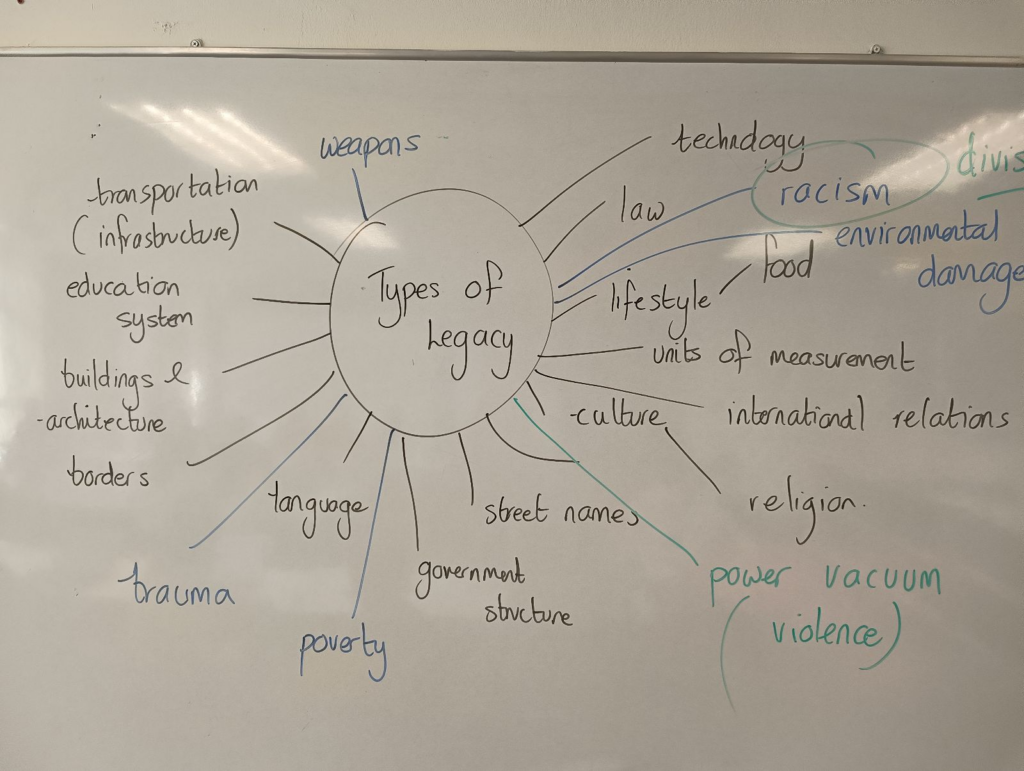 Types of
Legacy
weapons
technology
racism
divis
law
environmental
damage
food
lifestyle
units of measurement
international relations
culture
religion.
street names
power vacuum
(violence)
government
structure
language
poverty
trauma
borders
buildings &
architecture
education
system
transportation
(infrastructure)